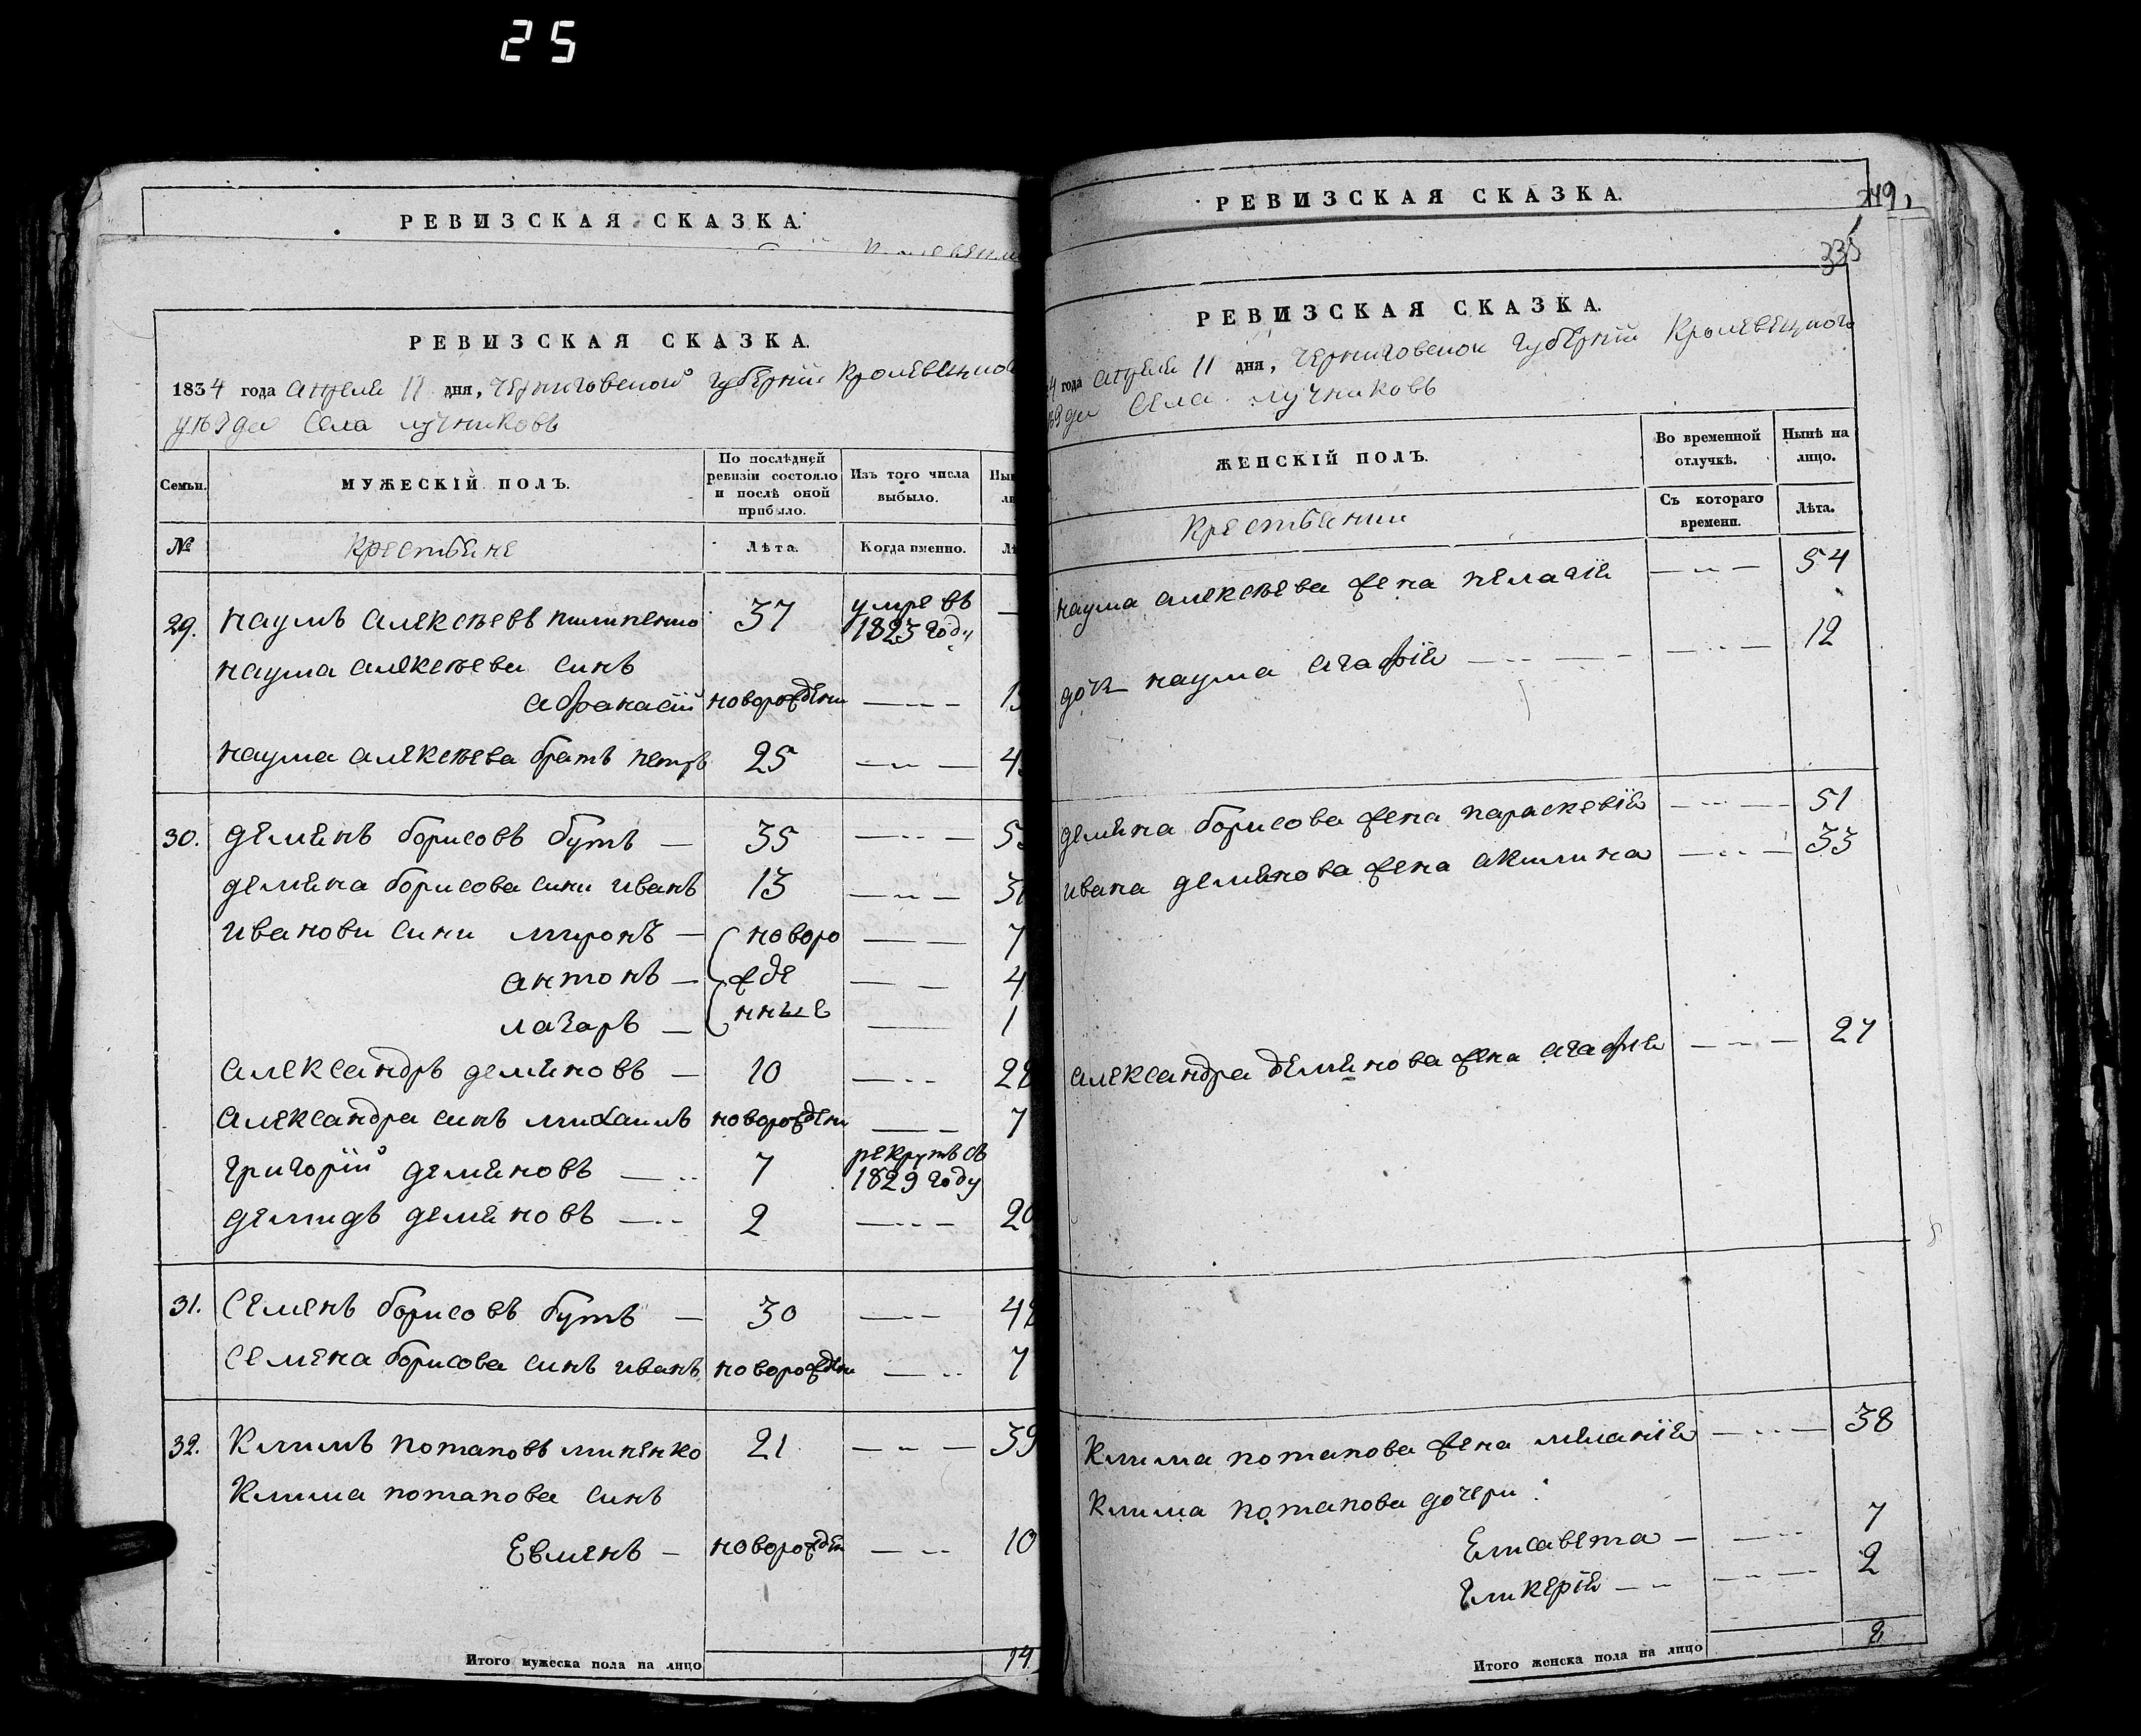 25
РЕВИЗСКАЯ СКАЗКА.
РЕВИЗСКАЯ СКАЗКА.
1834 года апреля 11 дня, Черниговской губернии Кролевецкого
уѣзда села лучниковъ
Семьи.
МУЖЕСКІЙ ПОЛЪ.
По послѣдней
ревизіи состояло
и послѣ оной
прибыло.
Изъ того числа
выбыло.
№
Крестьяне
Лѣта.
Когда именно.
29. Наумъ Алексѣевъ пилипенко 37 умре въ
1823 году
Наума алексѣева синъ
Афанасій новорожден —
Наума алексѣева братъ петръ 25 —
30. Демянъ борисовъ бутъ — 35 —
Демяна борисова сини иванъ 13 —
Иванови сини миронъ — новоро — 7
антонъ — жде — 4
лазаръ — нные — 1
Александръ демяновъ — 10 — 28
Александра синъ михаилъ новорожден — 7
Григорій демяновъ — 7 рекрутъ съ
1829 году
Демидъ демяновъ — 2 — 20
31. Семенъ борисовъ бутъ — 30 — 48
Семена борисова синъ иванъ новорожден — 7
32. Климъ потаповъ миненко 21 — 39
Клима потапова синъ
Евменъ — новорожден — 10
Итого мужеска пола на лицо 14
РЕВИЗСКАЯ СКАЗКА.
249
335
РЕВИЗСКАЯ СКАЗКА.
4 года апреля 11 дня, Черниговской губерніи Кролевецкого
ѣзда Села лучниковъ
ЖЕНСКІЙ ПОЛЪ.
Во временной
отлучкѣ.
Нынѣ на
лицо.
Съ котораго
времени.
Лѣта.
Крестьянки
Наума алексѣева жена пелагія — 54
дочь наума агафія — 12
Демяна борисова жена параскевія — 51
Ивана демянова жена акилина — 33
Александра демянова жена агафія — 27
Клима потапова жена меланія — 38
Клима потапова дочери:
Елисавета — 7
Гликерія — 2
Итого женска пола на лицо 8